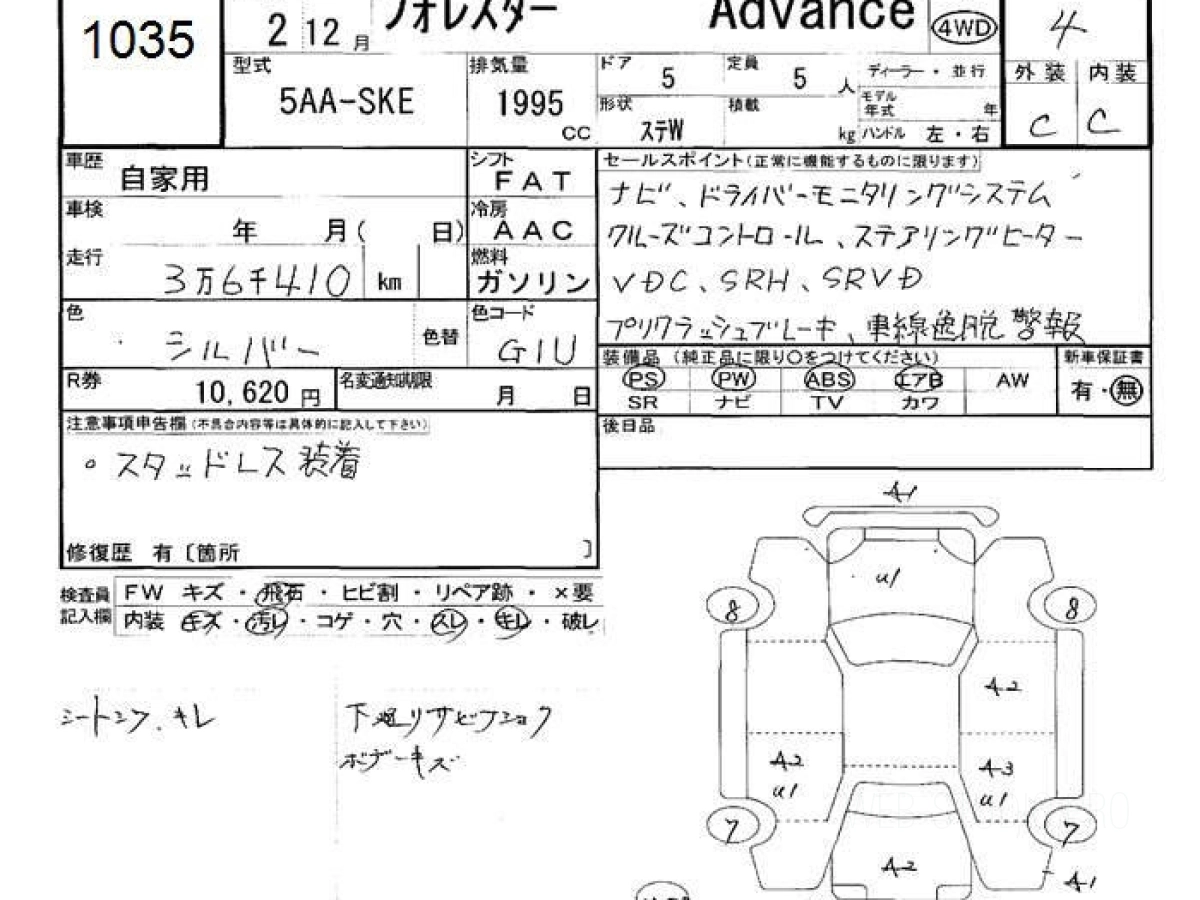 1035
2 12月
フォレスター Advance 4WD
4
型式 5AA-SKE
排気量 1995 CC
ドア 5
定員 5 人
形状 ステW
積載 kg
ディーラー・並行
モデル年式 年
ハンドル 左・右
外装 内装
C C
車歴 自家用
シフト FAT
車検 年 月( 日)
冷房 AAC
走行 3万6千410 km
燃料 ガソリン
色 シルバー 色替
色コード G1U
R券 10,620円
名変通知期限 月 日
セールスポイント(正常に機能するものに限ります)
ナビ、ドライバーモニタリングシステム
クルーズコントロール、ステアリングヒーター
VDC、SRH、SRVD
プリクラッシュブレーキ、車線逸脱警報
装備品 (純正品に限り○をつけてください)
PS PW ABS エアB AW
SR ナビ TV カワ
新車保証書
有・無
後日品
注意事項申告欄(不具合内容等は具体的に記入して下さい)
○スタッドレス装着
修復歴 有〔箇所 〕
検査員記入欄
FW キズ・飛石・ヒビ割・リペア跡・×要
内装 キズ・汚レ・コゲ・穴・スレ・キレ・破レ
シートシワ、キレ
下廻りサビフショク
ボデーキズ
A1
U1
8 8
A2
A2 U1
A3 U1
7 7
A2
A1